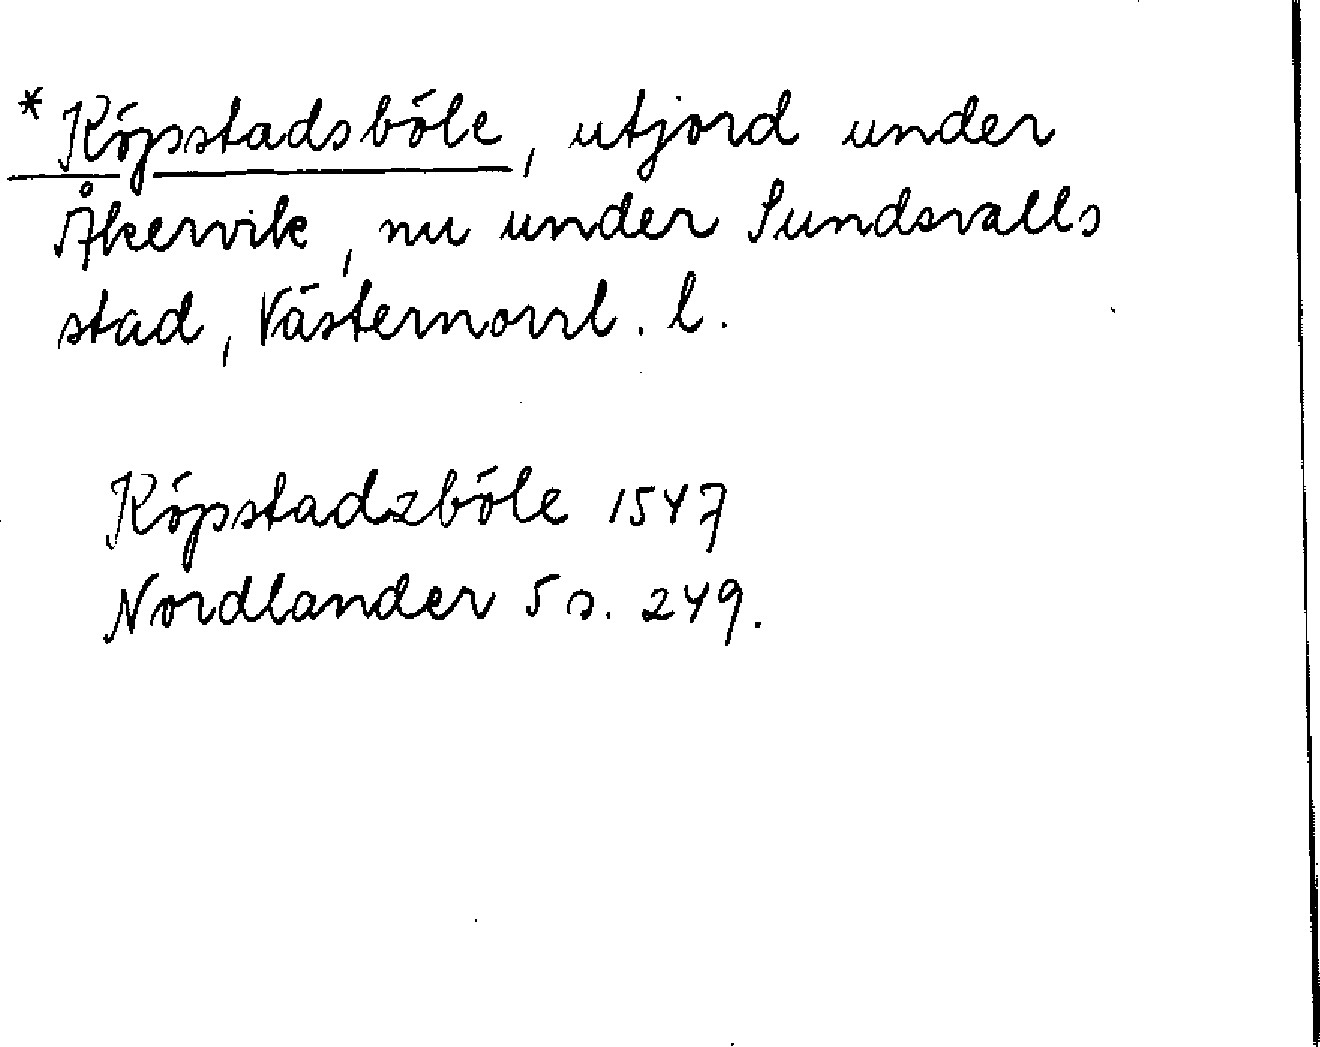 *Köpstadsböle, utjord under
Åkervik, nu under Sundsvalls
stad, Västernorrl. l.
Köpstadzböle 1547
Nordlander 5 s. 249.